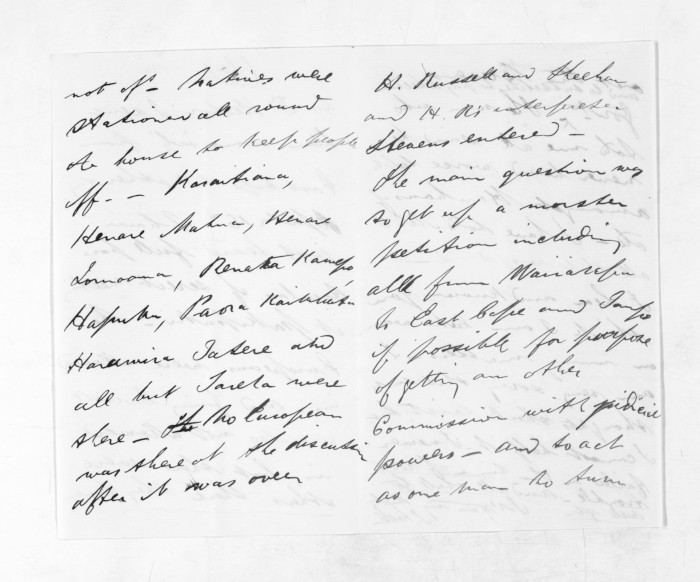 not of - Natives were
stationed all round
the house to keep people
off. - Karaitiana,
Henare Matua, Henare
Tomoana, Renata Kawepo,
Hapuku, Paora Kaiwhata
Harawira Tatere and
all but Tareha were
there - No European
was there at the discussion
after it was over
H. Russell and Sheehan
and H. R's interpreter
Stevens entered -
The main question was
to get up a monster
petition including
all from Wairarapa
to East Cape and Taupo
if possible for purpose
of getting an other
Commission with judicial
powers - and to act
as one man to turn